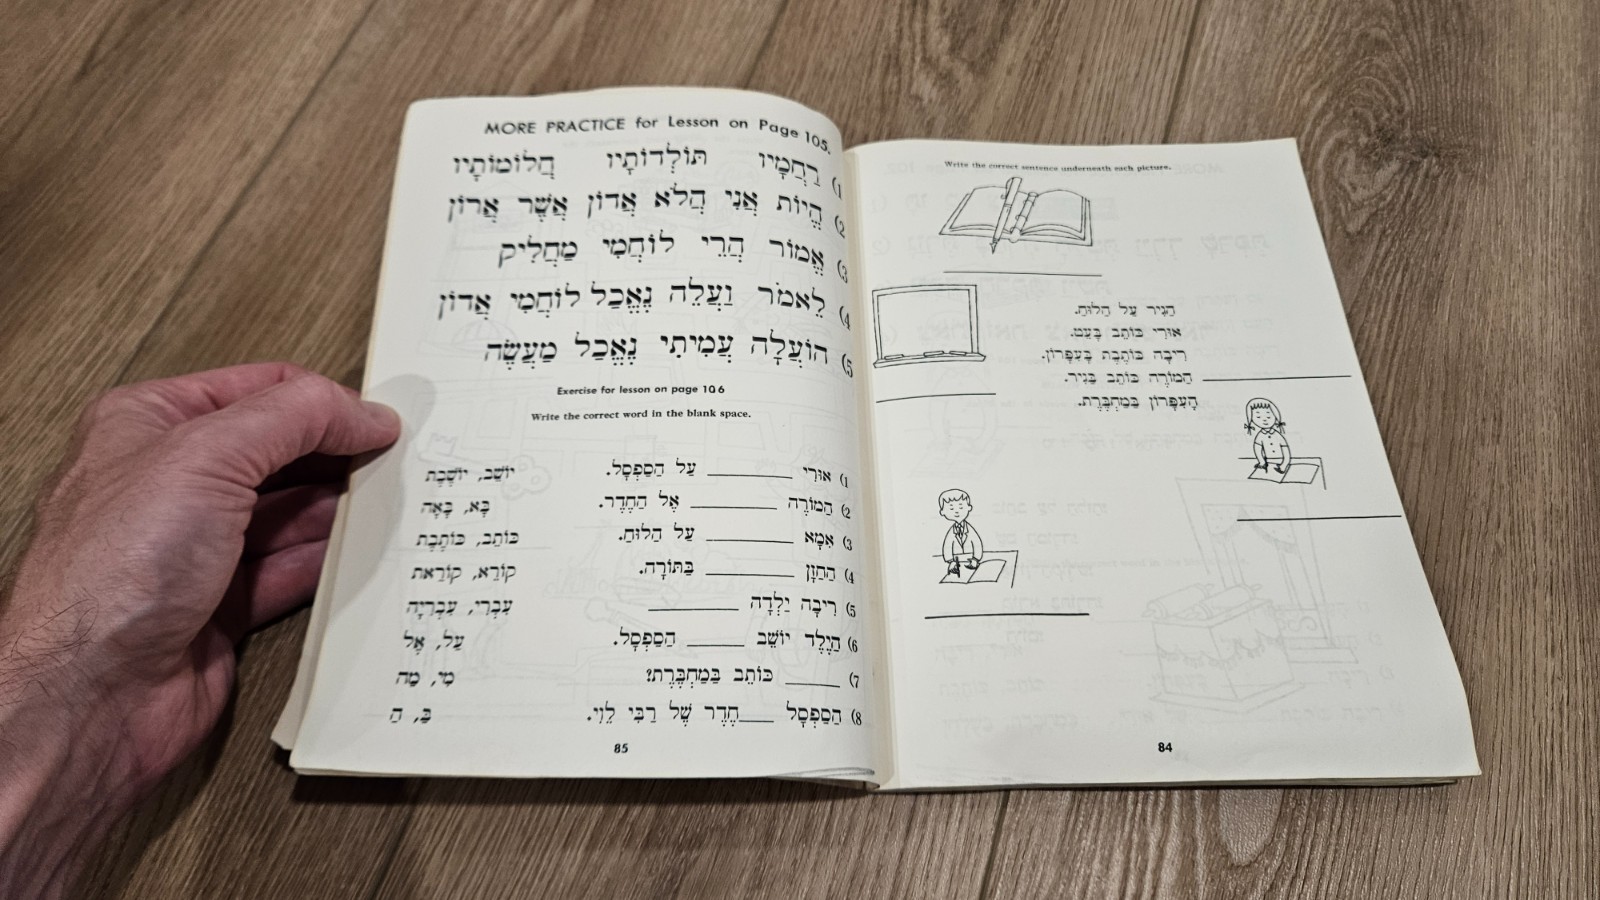 Write the correct sentence underneath each picture.
הַגִּיר עַל הַלּוּחַ.
אוּרִי כּוֹתֵב בָּעֵט.
רִיבָה כּוֹתֶבֶת בָּעִפָּרוֹן.
הַמּוֹרֶה כּוֹתֵב בַּגִּיר.
הָעִפָּרוֹן בַּמַּחְבֶּרֶת.
84
MORE PRACTICE for Lesson on Page 105.
1) רַחֲמָיו תּוֹלְדוֹתָיו חֲלוֹמוֹתָיו
2) הֱיוֹת אֲנִי הֲלֹא אֲדוֹן אֲשֶׁר אֲרוֹן
3) אֱמוֹר הֲרֵי לוֹחֲמִי מַחֲלִיק
4) לֵאמֹר וַעֲלֵה נֶאֱכַל לוֹחֲמִי אֲדוֹן
5) הוֹעֲלָה עֲמִיתִי נֶאֱכַל מַעֲשֶׂה
Exercise for lesson on page 106
Write the correct word in the blank space.
1) אוּרִי ______ עַל הַסַּפְסָל. יוֹשֵׁב, יוֹשֶׁבֶת
2) הַמּוֹרֶה ______ אֶל הַחֶדֶר. בָּא, בָּאָה
3) אִמָּא ______ עַל הַלּוּחַ. כּוֹתֵב, כּוֹתֶבֶת
4) הַחַזָּן ______ בַּתּוֹרָה. קוֹרֵא, קוֹרֵאת
5) רִיבָה יַלְדָה ______ עִבְרִי, עִבְרִיָה
6) הַיֶּלֶד יוֹשֵׁב ____ הַסַּפְסָל. עַל, אֶל
7) ____ כּוֹתֵב בַּמַּחְבֶּרֶת? מִי, מַה
8) הַסַּפְסָל ___חֶדֶר שֶׁל רַבִּי לֵוִי. בַּ, הַ
85